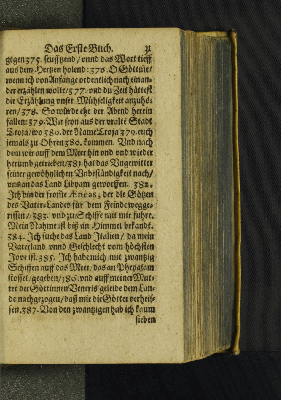 Das Erste Buch. 31
gegen 375. seufftzend / vnnd das Wort tieff
aus dem Hertzen holend: 376. O Göttinne /
wenn ich von Anfange ordentlich nach einan-
der erzählen wolte / 377. vnd du Zeit hättest
die Erzählung vnser Mühseligkeit anzuhö-
ren / 378. So würde ehe der Abend herein
fallen: 379. Wir seyn aus der uralte Stadt
Troja / wo 380. der Name Troja 379. euch
jemals zu Ohren 380. kommen. Vnd nach
dem wir auff dem Meer hin vnd vnd wieder
herumb getrieben / 381. hat das Ungewitter
seiner gewöhnlichen Unbeständigkeit nach /
vns an das Land Libyam geworffen. 382.
Ich bin der fromme Æneas, der die Götzen
des Vater-Landes für dem Feinde wegge-
rissen / 383. vnd zu Schiffe mit mir führe.
Mein Nahme ist biß im Himmel bekandt.
384. Ich suche das Land Italien / da mein
Vaterland vnnd Geschlecht vom höchsten
Jove ist. 385. Ich habe mich mit zwantzig
Schiffen auff das Meer / das an Phrygiam
stösset / gegeben / 386. vnd auff meiner Mut-
ter der Göttinnen Veneris geleide dem Lan-
de nachgezogen / daß mir die Götter verheis-
sen. 387. Von den zwantzigen hab ich kaum
sieben